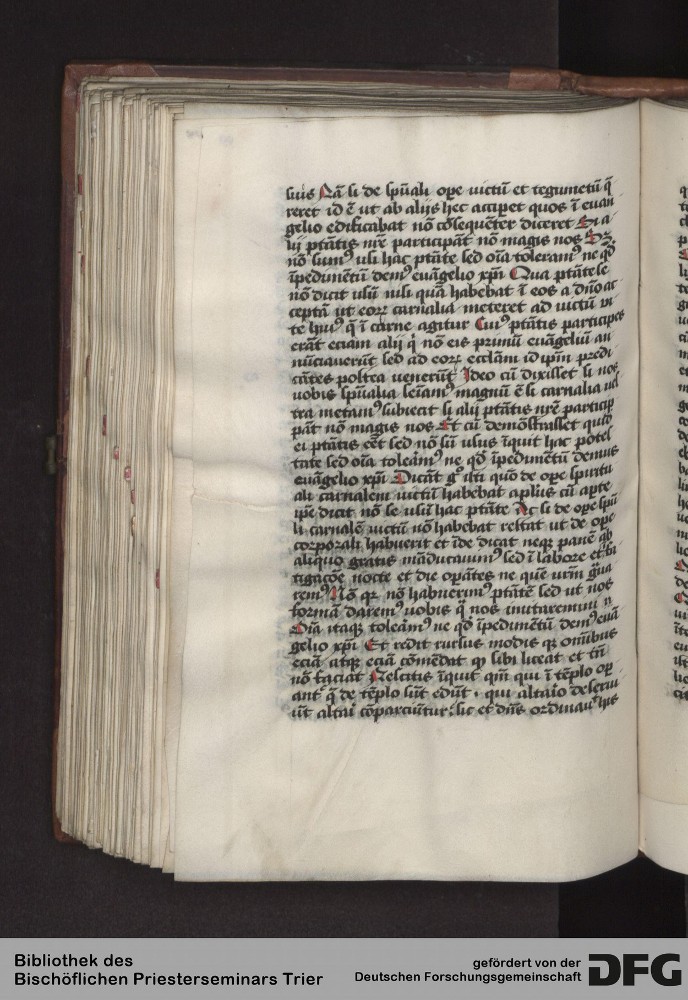 suis Nā si de spūali ope victū et tegumētū q̄
reret id ē ut ab aliis hec acciperet quos ī euan
gelio edificabat nō cōsequēter diceret Si a
lij ptātis nr̄e participāt nō magis nos Sꝫ
nō sumꝰ usi hac ptāte sed oīa toleramꝰ ne qd̓
īpedimētū demꝰ euāgelio xpī Qua ptāte se
nō dicit usū nisi quā habebat ī eos a dn̄o ac
ceptā ut eoꝝ carnalia meteret ad victū vi
te huiꝰ q̄ ī carne agitur Cuiꝰ ptātis participes
erāt eciam alij q̄ nō eis primū euāgeliū an
nūciauerūt sed ad eoꝝ ecclām idip̄m predi
cātes postea venerūt Ideo cū dixisset si nos
vobis spūalia seīamꝰ magnū ē si carnalia ve
stra metamꝰ subiecit si alij ptātis nr̄e particip
pāt nō magis nos Et cū demōstrasset quid
ei ptātis eēt sed nō sū usus īquit hac potes
tate sed oīa toleāmꝰ ne qd̓ īpedimētū demus
euāgelio xpī Dicāt gͦ isti quō de ope spiritu
ali carnalem victū habebat aplūs cū apte
ip̄e dicit nō se usū hac ptāte At si de ope spū
li carnalē victū nō habebat restat ut de ope
corporali habuerit et īde dicat neqꝫ panē ab
aliquo gratis māducauimꝰ sed ī labore et fa
tigacōe nocte et die opātes ne quē vr̄m g̓ua
remꝰ Nō qꝛ nō habuerimꝰ ptātē sed ut nos
formā daremꝰ vobis q̄ nos imitaremini
Oīa itaqꝫ toleāmꝰ ne qd̓ īpedimētū demꝰ euā
gelio xpī Et redit rursus modis qꝫ omībus
eciā atqꝫ eciā cōmēdat qͥ sibi liceat et tn̄
nō faciat Nescitis īquit qm̄ qui ī tēplo op
ant̓ q̄ de tēplo sūt edūt, qui altaīo deserui
ūt altaī cōparciūtur, sic et dn̄s ordinauͭ his
Bibliothek des
Bischöflichen Priesterseminars Trier
gefördert von der
Deutschen Forschungsgemeinschaft
DFG